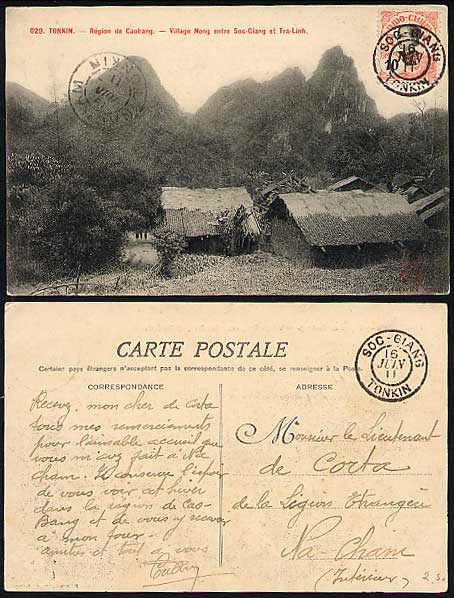 629. TONKIN. — Région de Caobang. — Village Nong entre Soc-Giang et Tra-Linh.
INDO-CHINE
10
SOC-GIANG
16
JUIN
11
TONKIN
CARTE POSTALE
Certains pays étrangers n'acceptant pas la correspondance de ce côté, se renseigner à la Poste.
CORRESPONDANCE
ADRESSE
SOC-GIANG
16
JUIN
11
TONKIN
Recevez, mon cher de Corta
tous mes remerciements
pour l'aimable accueil que
vous m'avez fait à Na
Cham. Je conserve l'espoir
de vous voir cet hiver
dans la région de Cao-
Bang et de vous y recevoir
à mon tour.
Amitiés et tout à vous
Monsieur le Lieutenant
de Corta
de la Légion Etrangère
Na-Cham
(Intérieur)